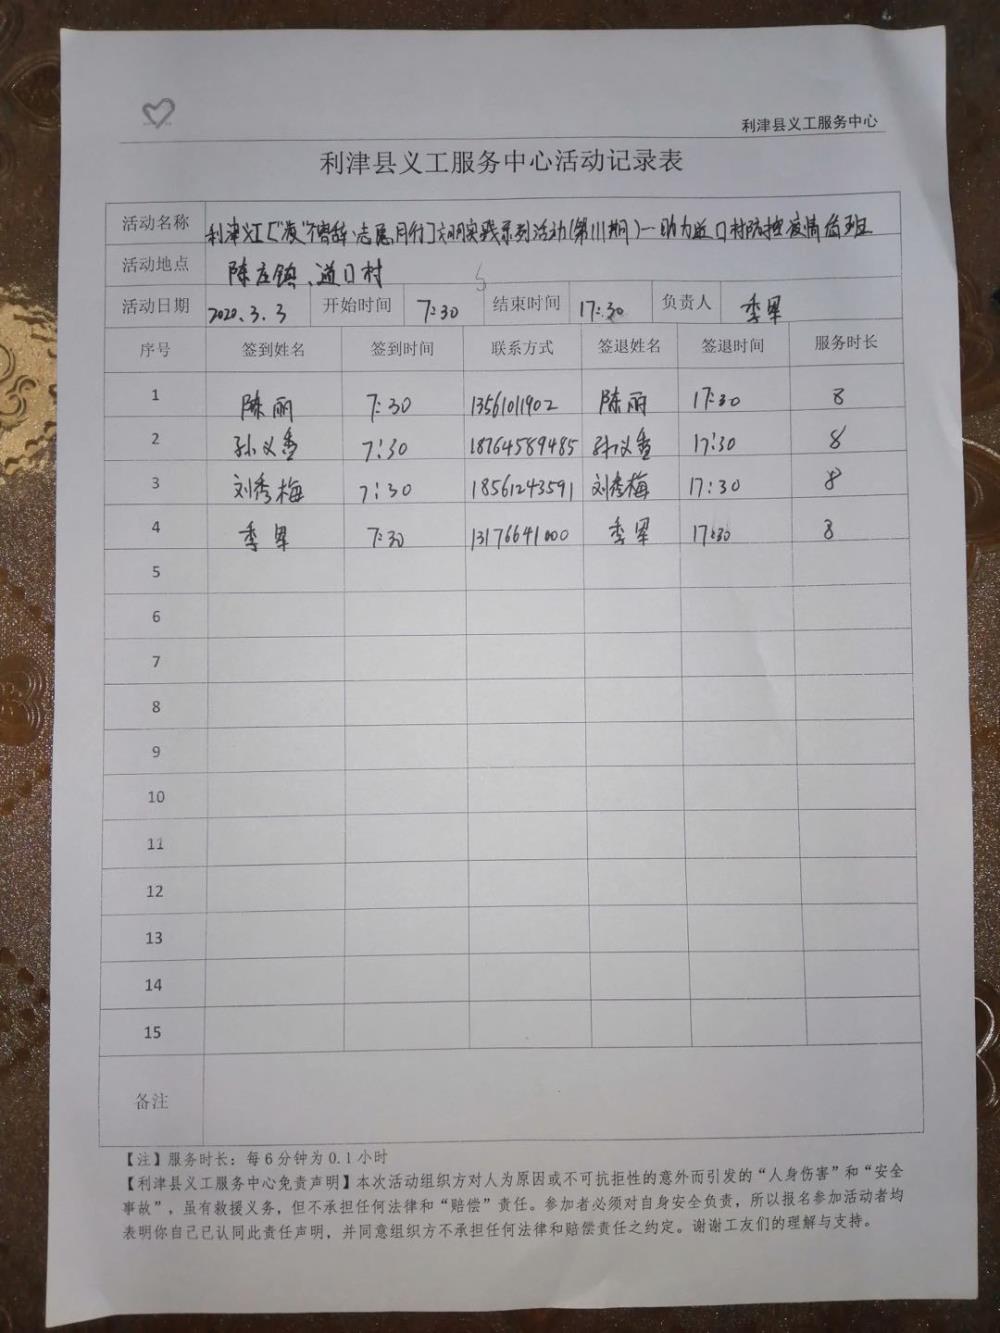 利津县义工服务中心
利津县义工服务中心活动记录表
活动名称 利津义工["疫"不容辞·志愿同行]文明实践系列活动(第111期)—助力道口村防控疫情值班
活动地点 陈庄镇、道口村
活动日期 2020.3.3 开始时间 7:30 结束时间 17:30 负责人 季
序号 签到姓名 签到时间 联系方式 签退姓名 签退时间 服务时长
1 陈丽 7:30 13561011902 陈丽 17:30 8
2 孙义香 7:30 18764589485 孙义香 17:30 8
3 刘秀梅 7:30 18561243591 刘秀梅 17:30 8
4 季 7:30 13176641000 季 17:30 8
5
6
7
8
9
10
11
12
13
14
15
备注
【注】服务时长：每6分钟为0.1小时
【利津县义工服务中心免责声明】本次活动组织方对人为原因或不可抗拒性的意外而引发的“人身伤害”和“安全
事故”，虽有救援义务，但不承担任何法律和“赔偿”责任。参加者必须对自身安全负责，所以报名参加活动者均
表明你自己已认同此责任声明，并同意组织方不承担任何法律和赔偿责任之约定。谢谢工友们的理解与支持。